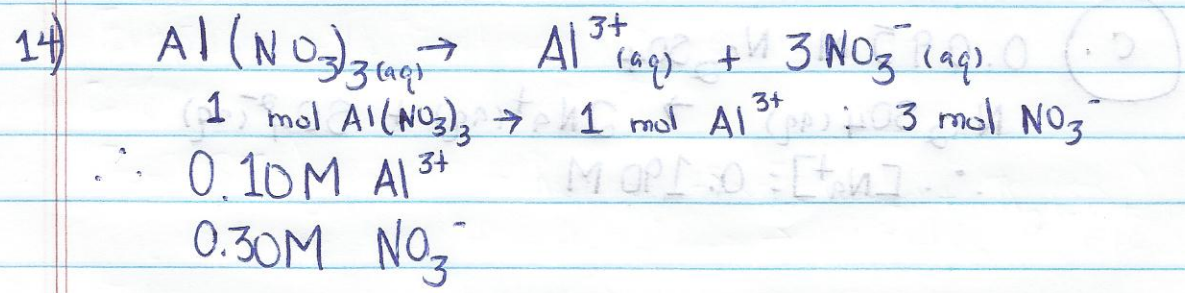 14) Al(NO₃)₃(aq) → Al³⁺(aq) + 3NO₃⁻(aq)
1 mol Al(NO₃)₃ → 1 mol Al³⁺ : 3 mol NO₃⁻
∴ 0.10M Al³⁺
0.30M NO₃⁻